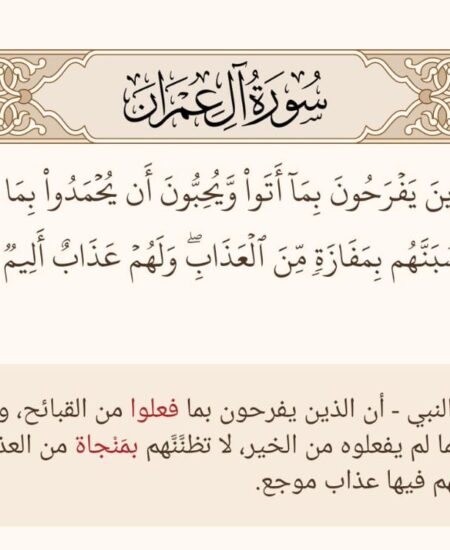 سُورَةُ آلِ عِمْرَانَ
يَفْرَحُونَ بِمَآ أَتَوا۟ وَّيُحِبُّونَ أَن يُحْمَدُوا۟ بِمَا
بِمَفَازَةٍ مِّنَ ٱلْعَذَابِۖ وَلَهُمْ عَذَابٌ أَلِيمٌ
النبي - أن الذين يفرحون بما فعلوا من القبائح، و
ما لم يفعلوه من الخير، لا تظنَّنَّهم بمَنْجاة من العذ
هم فيها عذاب موجع.